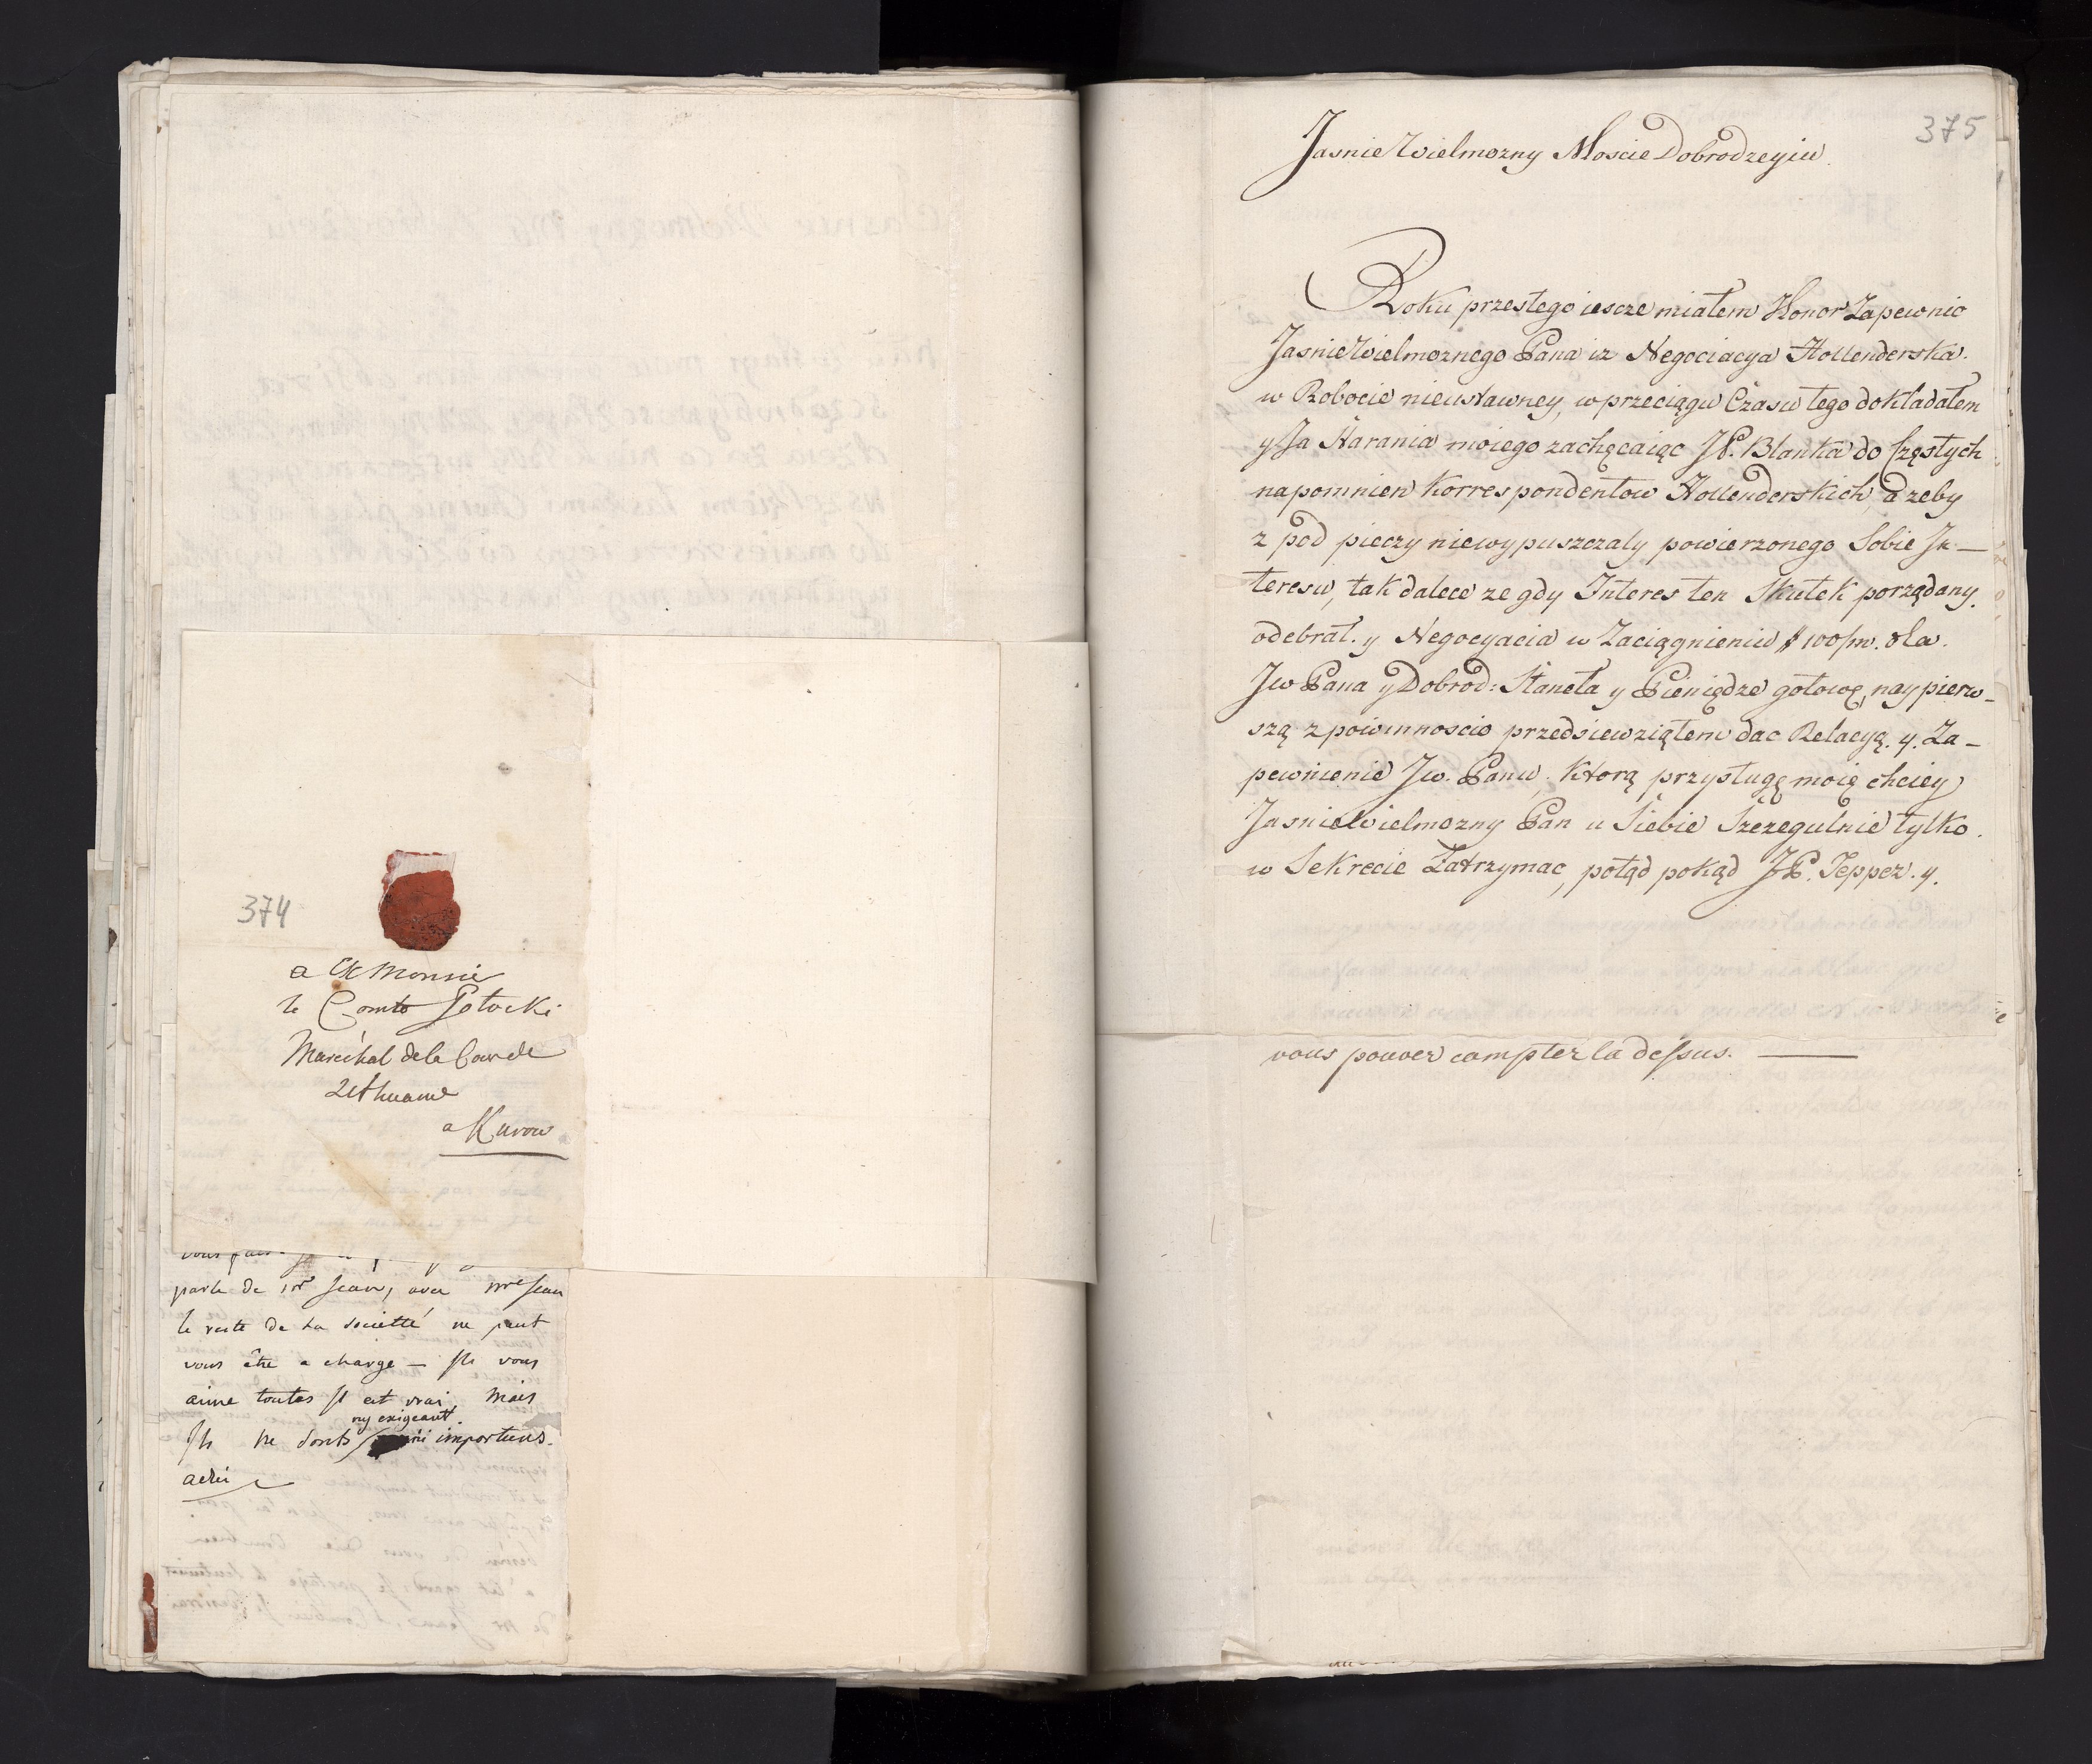 374
a Monsie
le Comte Potocki
Marechal de la Cour de
Lithuanie
a Kurow
parle de mr Jean, avec mr Jean
le reste de la societté ne peut
vous être a charge — Ils vous
aime toutes Il est vrai, mais
ny exigeant.
Ils ne sonts ni importuns.
adiu
375
Jasnie Wielmozny Moscie Dobrodzeyiu
Roku przeszłego iescze miałem Honor Zapewnic
Jasnie Wielmoznego Pana iz Negociacya Hollenderska.
w Robocie nieustawney, w przeciągu Czasu tego dokładałem
y Ja starania moiego zachęcaiąc JP. Blanka do Częstych
napomnien Korrespondentow Hollenderskich, a zeby
z pod pieczy niewypuszczaly powierzonego Sobie In—
teresu, tak dalece ze gdy Interes ten Skutek porządany.
odebrał. y Negocyacia w Zaciągnieniu # 100/m. dla.
Jw Pana y Dobrod: Staneła y Pieniądze gotowe, naypierw–
szą z powinnoscio przedsiewziąłem dac Relacyą. y. Za–
pewnienie Jw. Panu. Ktorą przysługę moię chciey
Jasnie Wielmozny Pan u Siebie Szczegulnie tylko.
w Sekrecie Zatrzymac, potąd pokąd JP. Tepper. y.
vous pouver compter la dessus. —